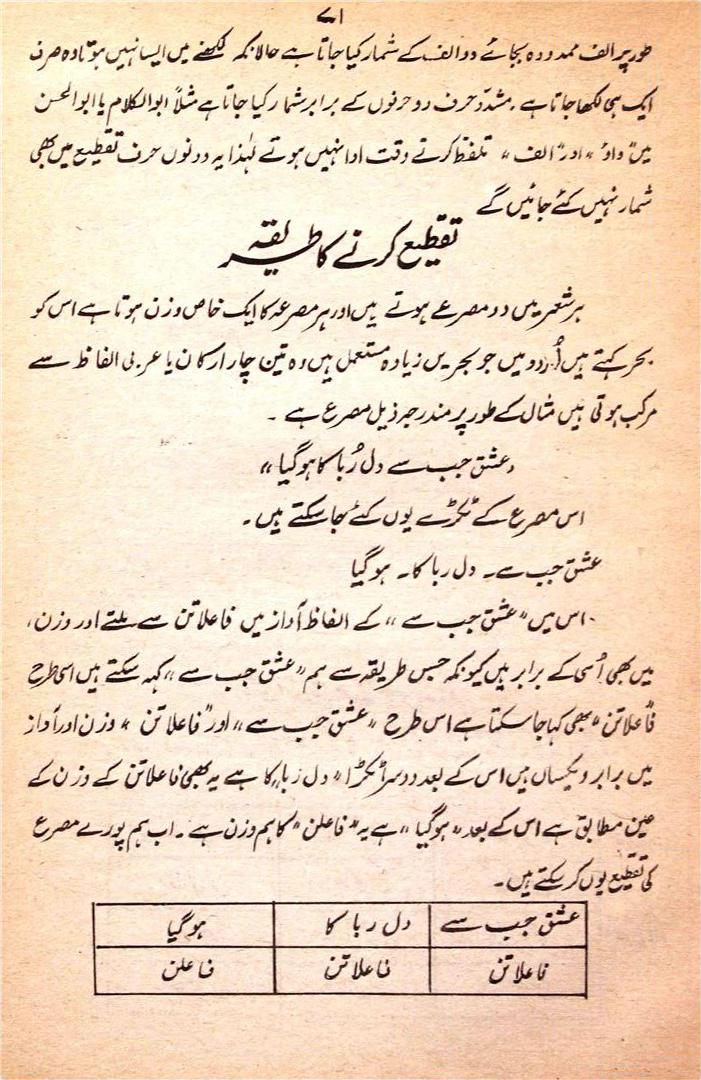 ۷۱
طور پر الف ممدودہ بجائے دو الف کے شمار کیا جاتا ہے حالانکہ لکھنے میں ایسا نہیں ہوتا وہ صرف
ایک ہی لکھا جاتا ہے۔ مشدّد حرف دو حرفوں کے برابر شمار کیا جاتا ہے مثلاً ابوالکلام یا ابوالحسن
میں "واؤ" اور "الف" تلفظ کرتے وقت ادا نہیں ہوتے لہٰذا یہ دونوں حرف تقطیع میں بھی
شمار نہیں کئے جائیں گے
تقطیع کرنے کا طریقہ
ہر شعر میں دو مصرعے ہوتے ہیں اور ہر مصرعہ کا ایک خاص وزن ہوتا ہے اس کو
بحر کہتے ہیں اُردو میں جو بحریں زیادہ مستعمل ہیں وہ تین چار ارکان یا عربی الفاظ سے
مرکب ہوتی ہیں مثال کے طور پر مندرجہ ذیل مصرع ہے ۔
"عشق جب سے دل رُبا کا ہو گیا"
اس مصرع کے ٹکڑے یوں کئے جا سکتے ہیں۔
عشق جب سے۔ دل ربا کا۔ ہو گیا
اس میں "عشق جب سے" کے الفاظ آواز میں فاعلاتن سے ملتے اور وزن،
میں بھی اُسی کے برابر ہیں کیونکہ جس طریقہ سے ہم "عشق جب سے" کہہ سکتے ہیں اسی طرح
"فاعلاتن" بھی کہا جا سکتا ہے اس طرح "عشق جب سے" اور "فاعلاتن" وزن اور آواز
میں برابر و یکساں ہیں اس کے بعد دوسرا ٹکڑا "دل رُبا کا" ہے یہ بھی فاعلاتن کے وزن کے
عین مطابق ہے اس کے بعد "ہو گیا" ہے یہ "فاعلن" کا ہم وزن ہے۔ اب ہم پورے مصرع
کی تقطیع یوں کر سکتے ہیں۔
عشق جب سے دل ربا کا ہو گیا
فاعلاتن فاعلاتن فاعلن